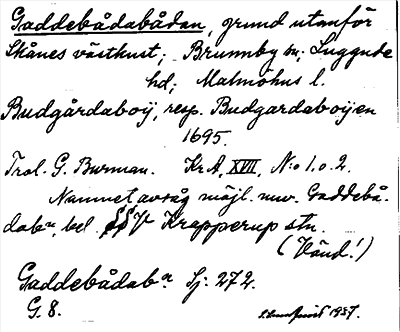 Gaddebådabådan, grund utanför
Skånes västkust; Brunnby sn; Luggude
hd; Malmöhus l.
Budgårdaboÿ, resp. Budgardaboÿen
1695.
Trol. G. Burman. KrA, XVII, N:o 1.o.2.
Namnet avsåg möjl. nuv. Gaddebå-
daban, bel. V Krapperup stn.
(Vänd!)
Gaddebådaban Sj: 272.
G. 8. 1937.